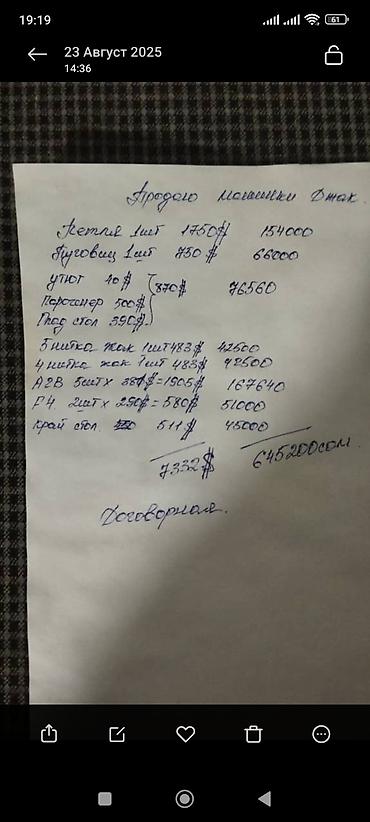 19:19
61
23 Август 2025
14:36
Продаю машинки Джак.
Петля 1шт 1750$ 154000
Пуговиц 1шт 750$ 66000
утюг 40$
Парогенер 500$ 870$ 76560
Глад стол 390$
5 нитка жак 1шт 483$ 42500
4 нитка жак 1шт 483$ 42500
A2B 5шт х 381$=1905$ 167640
F4. 2шт х 290$=580$ 51000
край стол 511$ 45000
7332$ 645200сом.
Договорная.